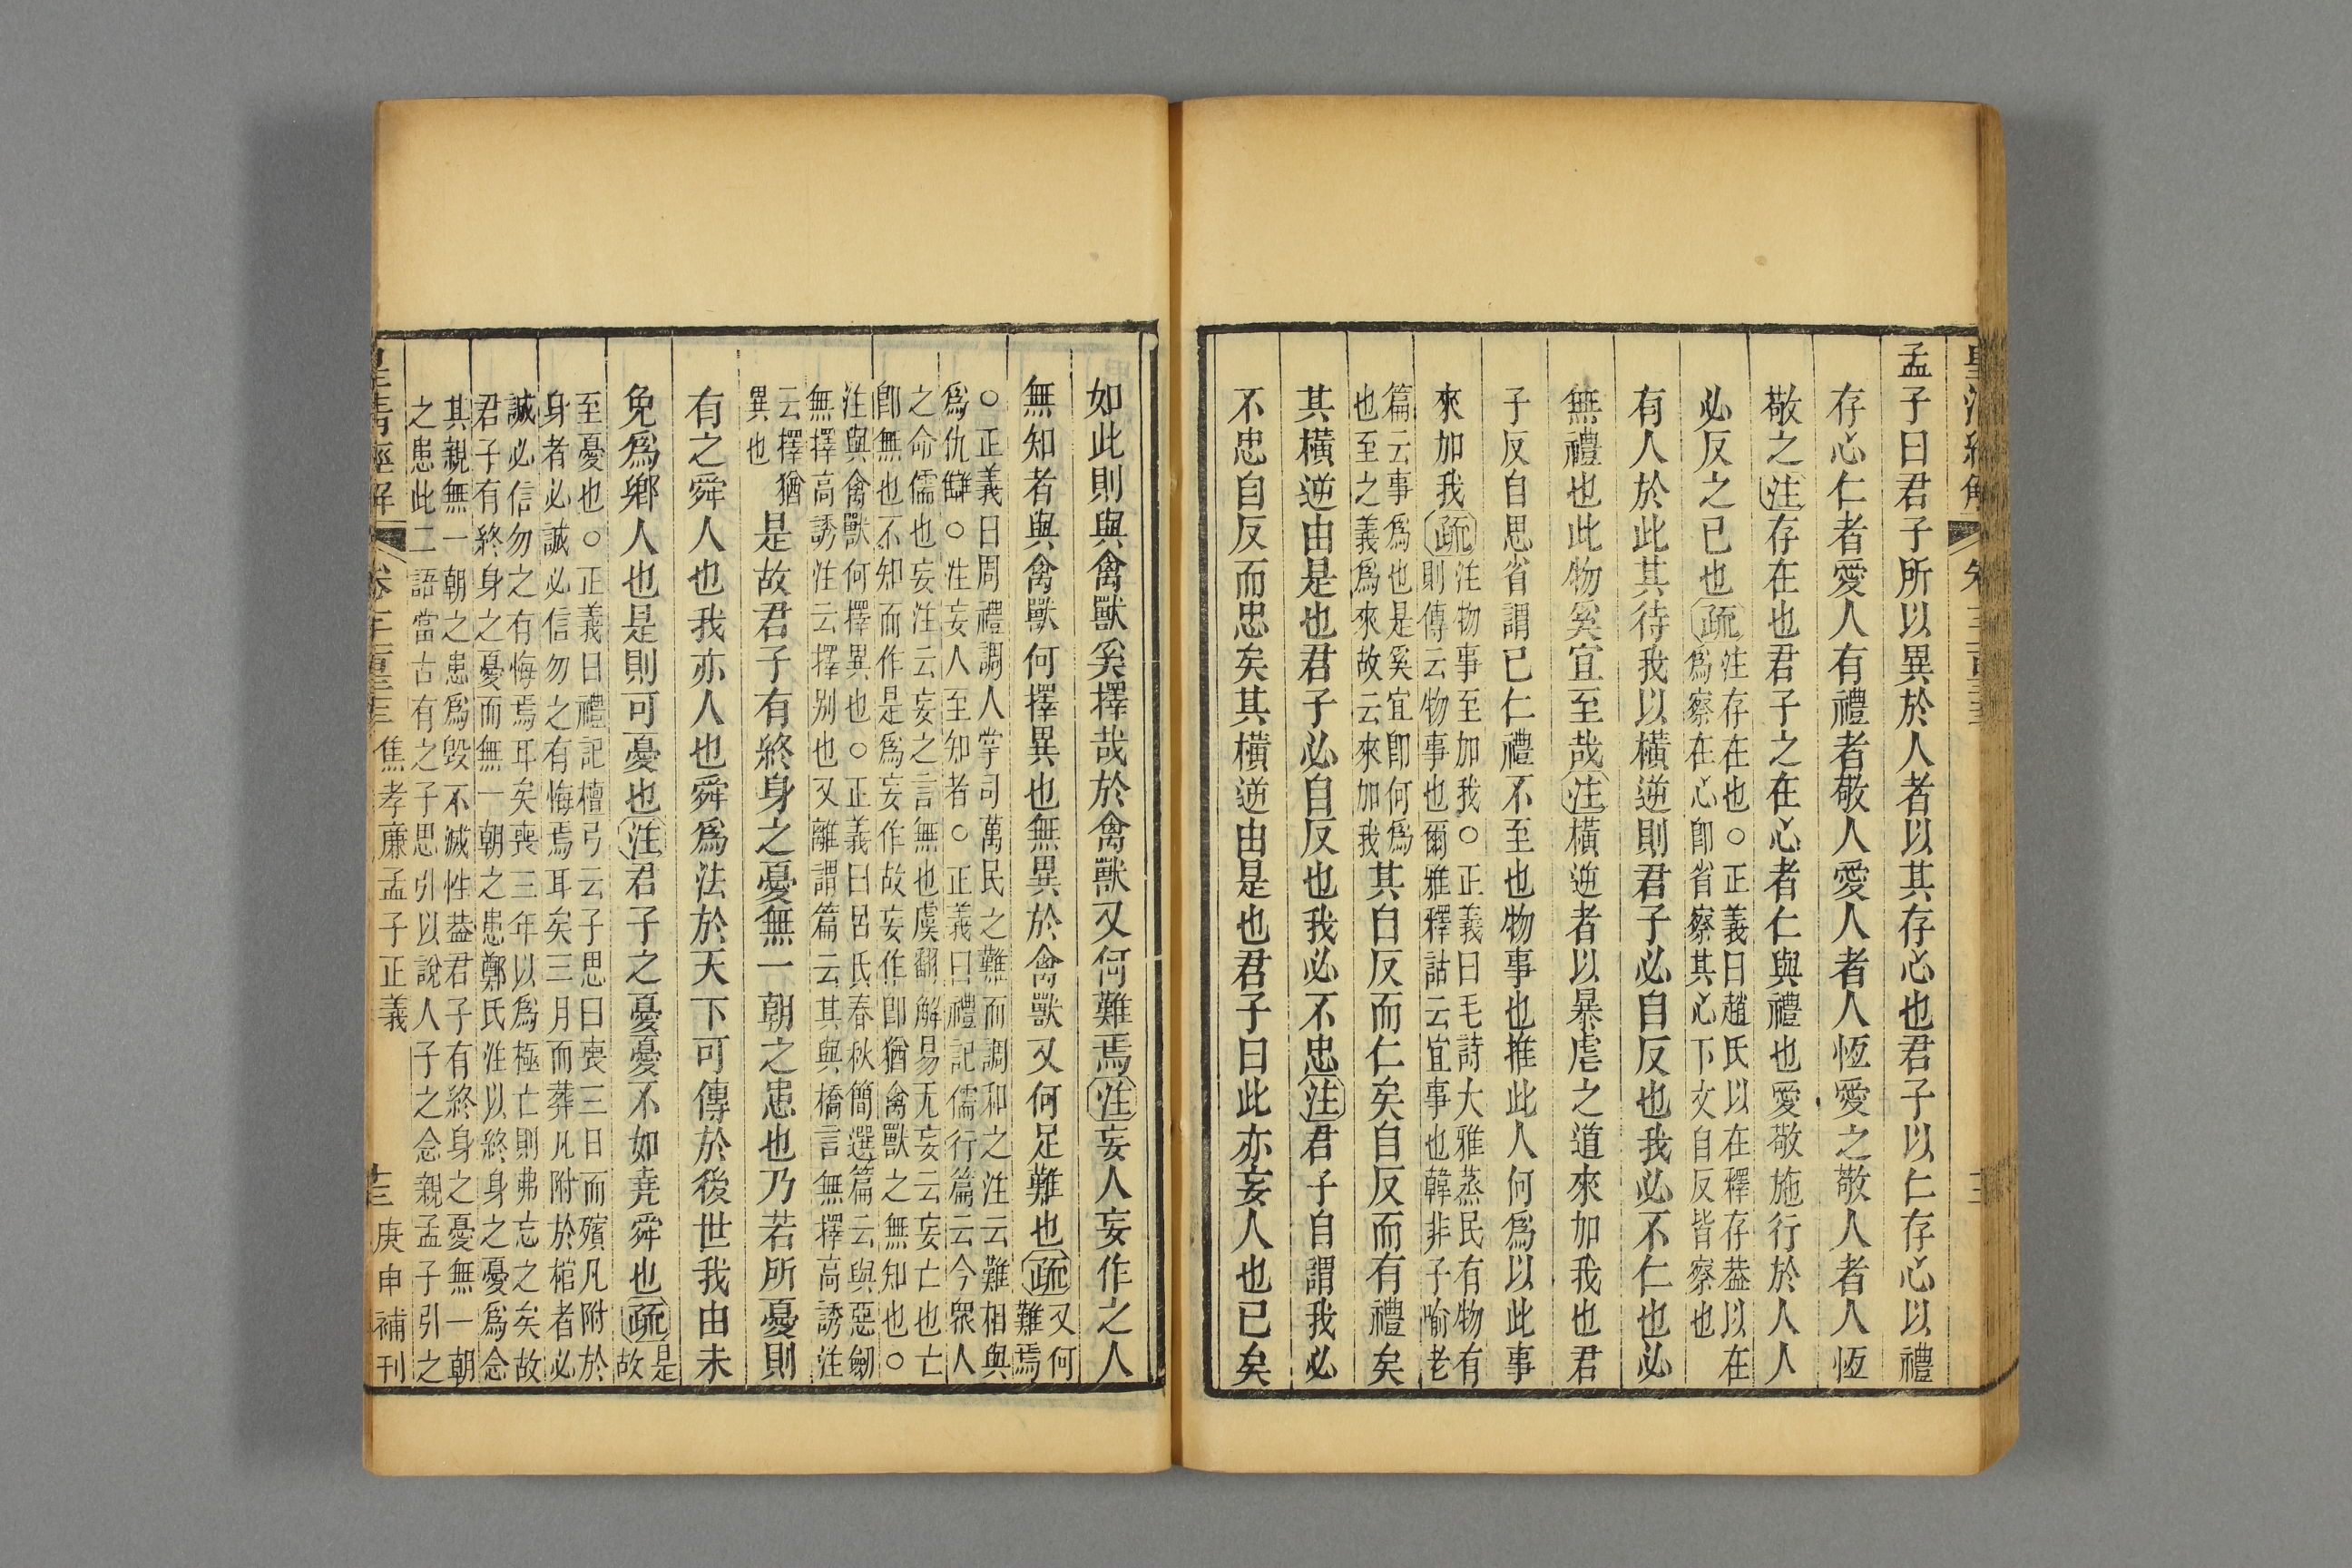 孟子曰君子所以異於人者以其存心也君子以仁存心以禮
存心仁者愛人有禮者敬人愛人者人恆愛之敬人者人恆
敬之注存在也君子之在心者仁與禮也愛敬施行於人人
必反之已也疏注存在也○正義曰趙氏以在釋存葢以在
爲察在心卽省察其心下文自反皆察也
有人於此其待我以橫逆則君子必自反也我必不仁也必
無禮也此物奚宜至哉注橫逆者以暴虐之道來加我也君
子反自思省謂已仁禮不至也物事也推此人何爲以此事
來加我疏注物事至加我○正義曰毛詩大雅蒸民有物有
則傳云物事也爾雅釋詁云宜事也韓非子喻老
篇云事爲也是奚宜卽何爲
也至之義爲來故云來加我其自反而仁矣自反而有禮矣
其橫逆由是也君子必自反也我必不忠注君子自謂我必
不忠自反而忠矣其橫逆由是也君子曰此亦妄人也已矣
如此則與禽獸奚擇哉於禽獸又何難焉注妄人妄作之人
無知者與禽獸何擇異也無異於禽獸又何足難也疏又何
難焉
○正義曰周禮調人掌司萬民之難而調和之注云難相與
爲仇讎○注妄人至知者○正義曰禮記儒行篇云今衆人
之命儒也妄注云妄之言無也虞翻解易无妄云妄亡也亡
卽無也不知而作是爲妄作故妄作卽猶禽獸之無知也○
注與禽獸何擇異也○正義曰呂氏春秋簡選篇云與惡劒
無擇高誘注云擇别也又離謂篇云其與橋言無擇高誘注
云擇猶
異也是故君子有終身之憂無一朝之患也乃若所憂則
有之舜人也我亦人也舜爲法於天下可傳於後世我由未
免爲鄉人也是則可憂也注君子之憂憂不如堯舜也疏是
故
至憂也○正義曰禮記檀弓云子思曰喪三日而殯凡附於
身者必誠必信勿之有悔焉耳矣三月而葬凡附於棺者必
誠必信勿之有悔焉耳矣喪三年以爲極亡則弗忘之矣故
君子有終身之憂而無一朝之患鄭氏注以終身之憂爲念
其親無一朝之患爲毀不滅性葢君子有終身之憂無一朝
之患此二語當古有之子思引以說人子之念親孟子引之
皇清經解
焦孝廉孟子正義
庚申補刊